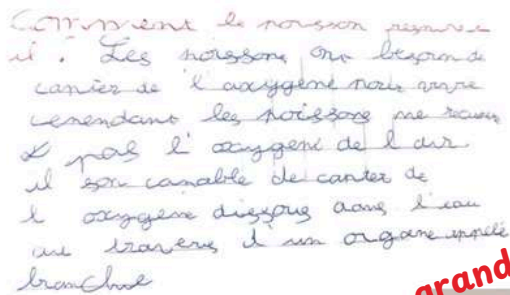 Comment le poisson respire
il. Les poissons on besoin de
capter de l'oxygène pour vivre
cependant les poissons ne
pas l'oxygène de l'air
il son capable de capter de
l oxygène dissous dans l'eau
au travers d'un organe appelé
branchie
grand